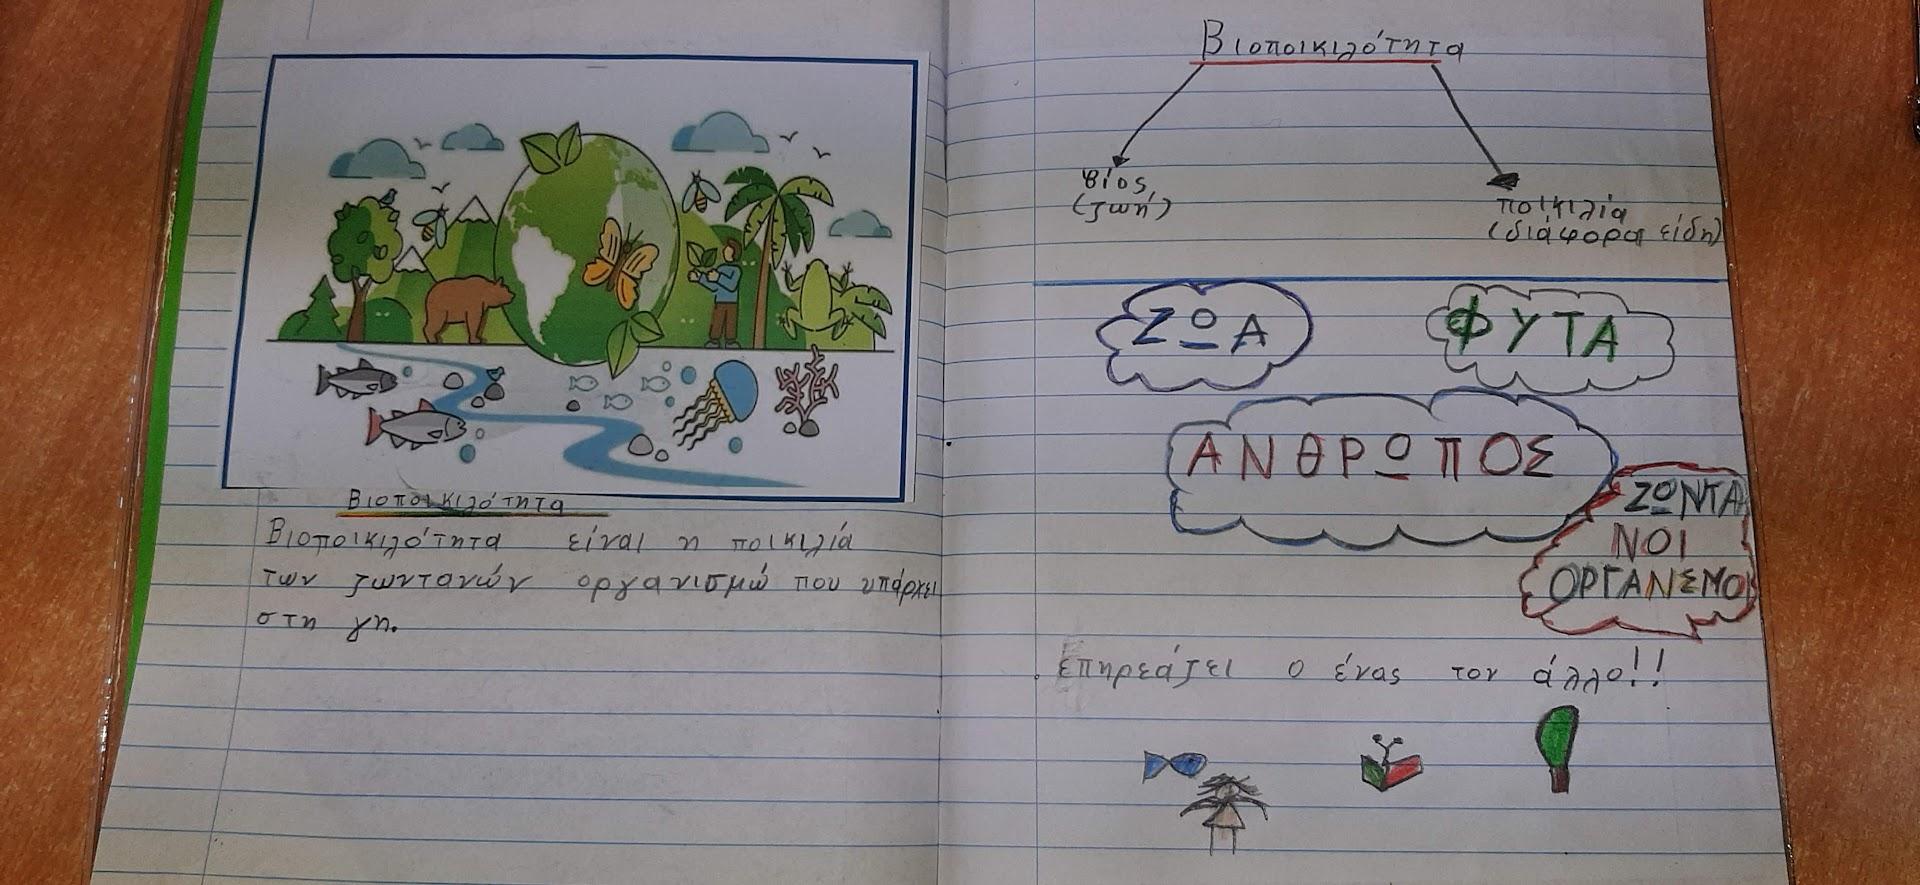 Βιοποικιλότητα
Βιοποικιλότητα είναι η ποικιλία
των ζωντανών οργανισμώ που υπάρχει
στη γη.
Βιοποικιλότητα
βίος
(ζωή)
ποικιλία
(διάφορα είδη)
ΖΩΑ
ΦΥΤΑ
ΑΝΘΡΩΠΟΣ
ΖΩΝΤΑ
ΝΟΙ
ΟΡΓΑΝΣΜΟΙ
επηρεάζει ο ένας τον άλλο!!